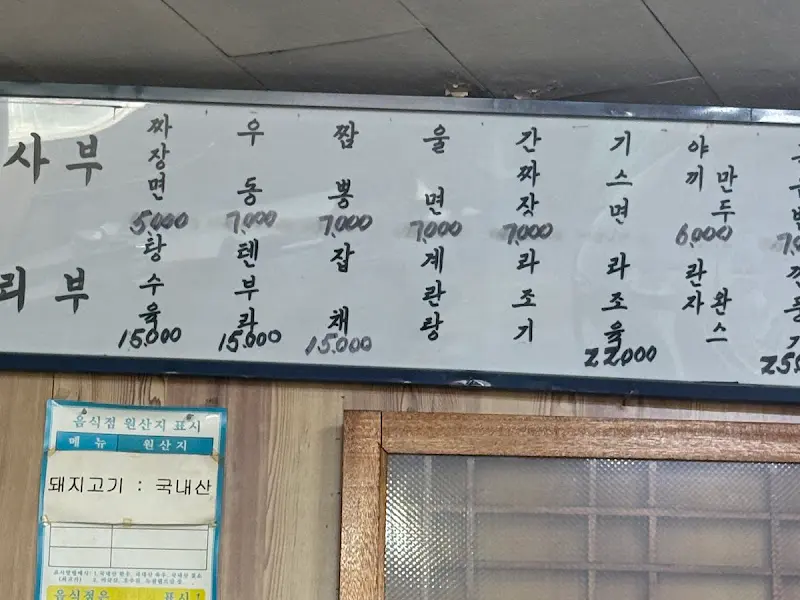 사부
짜장면
5,000
우동
7,000
짬뽕
7,000
울면
7,000
간짜장
7,000
기스면
야끼만두
6,000
리부
탕수육
15,000
텐부라
15,000
잡채
15,000
계란탕
라조기
라조육
22,000
란자완스
깐풍기
음식점 원산지 표시
메뉴 원산지
돼지고기 : 국내산
음식점은 표시!